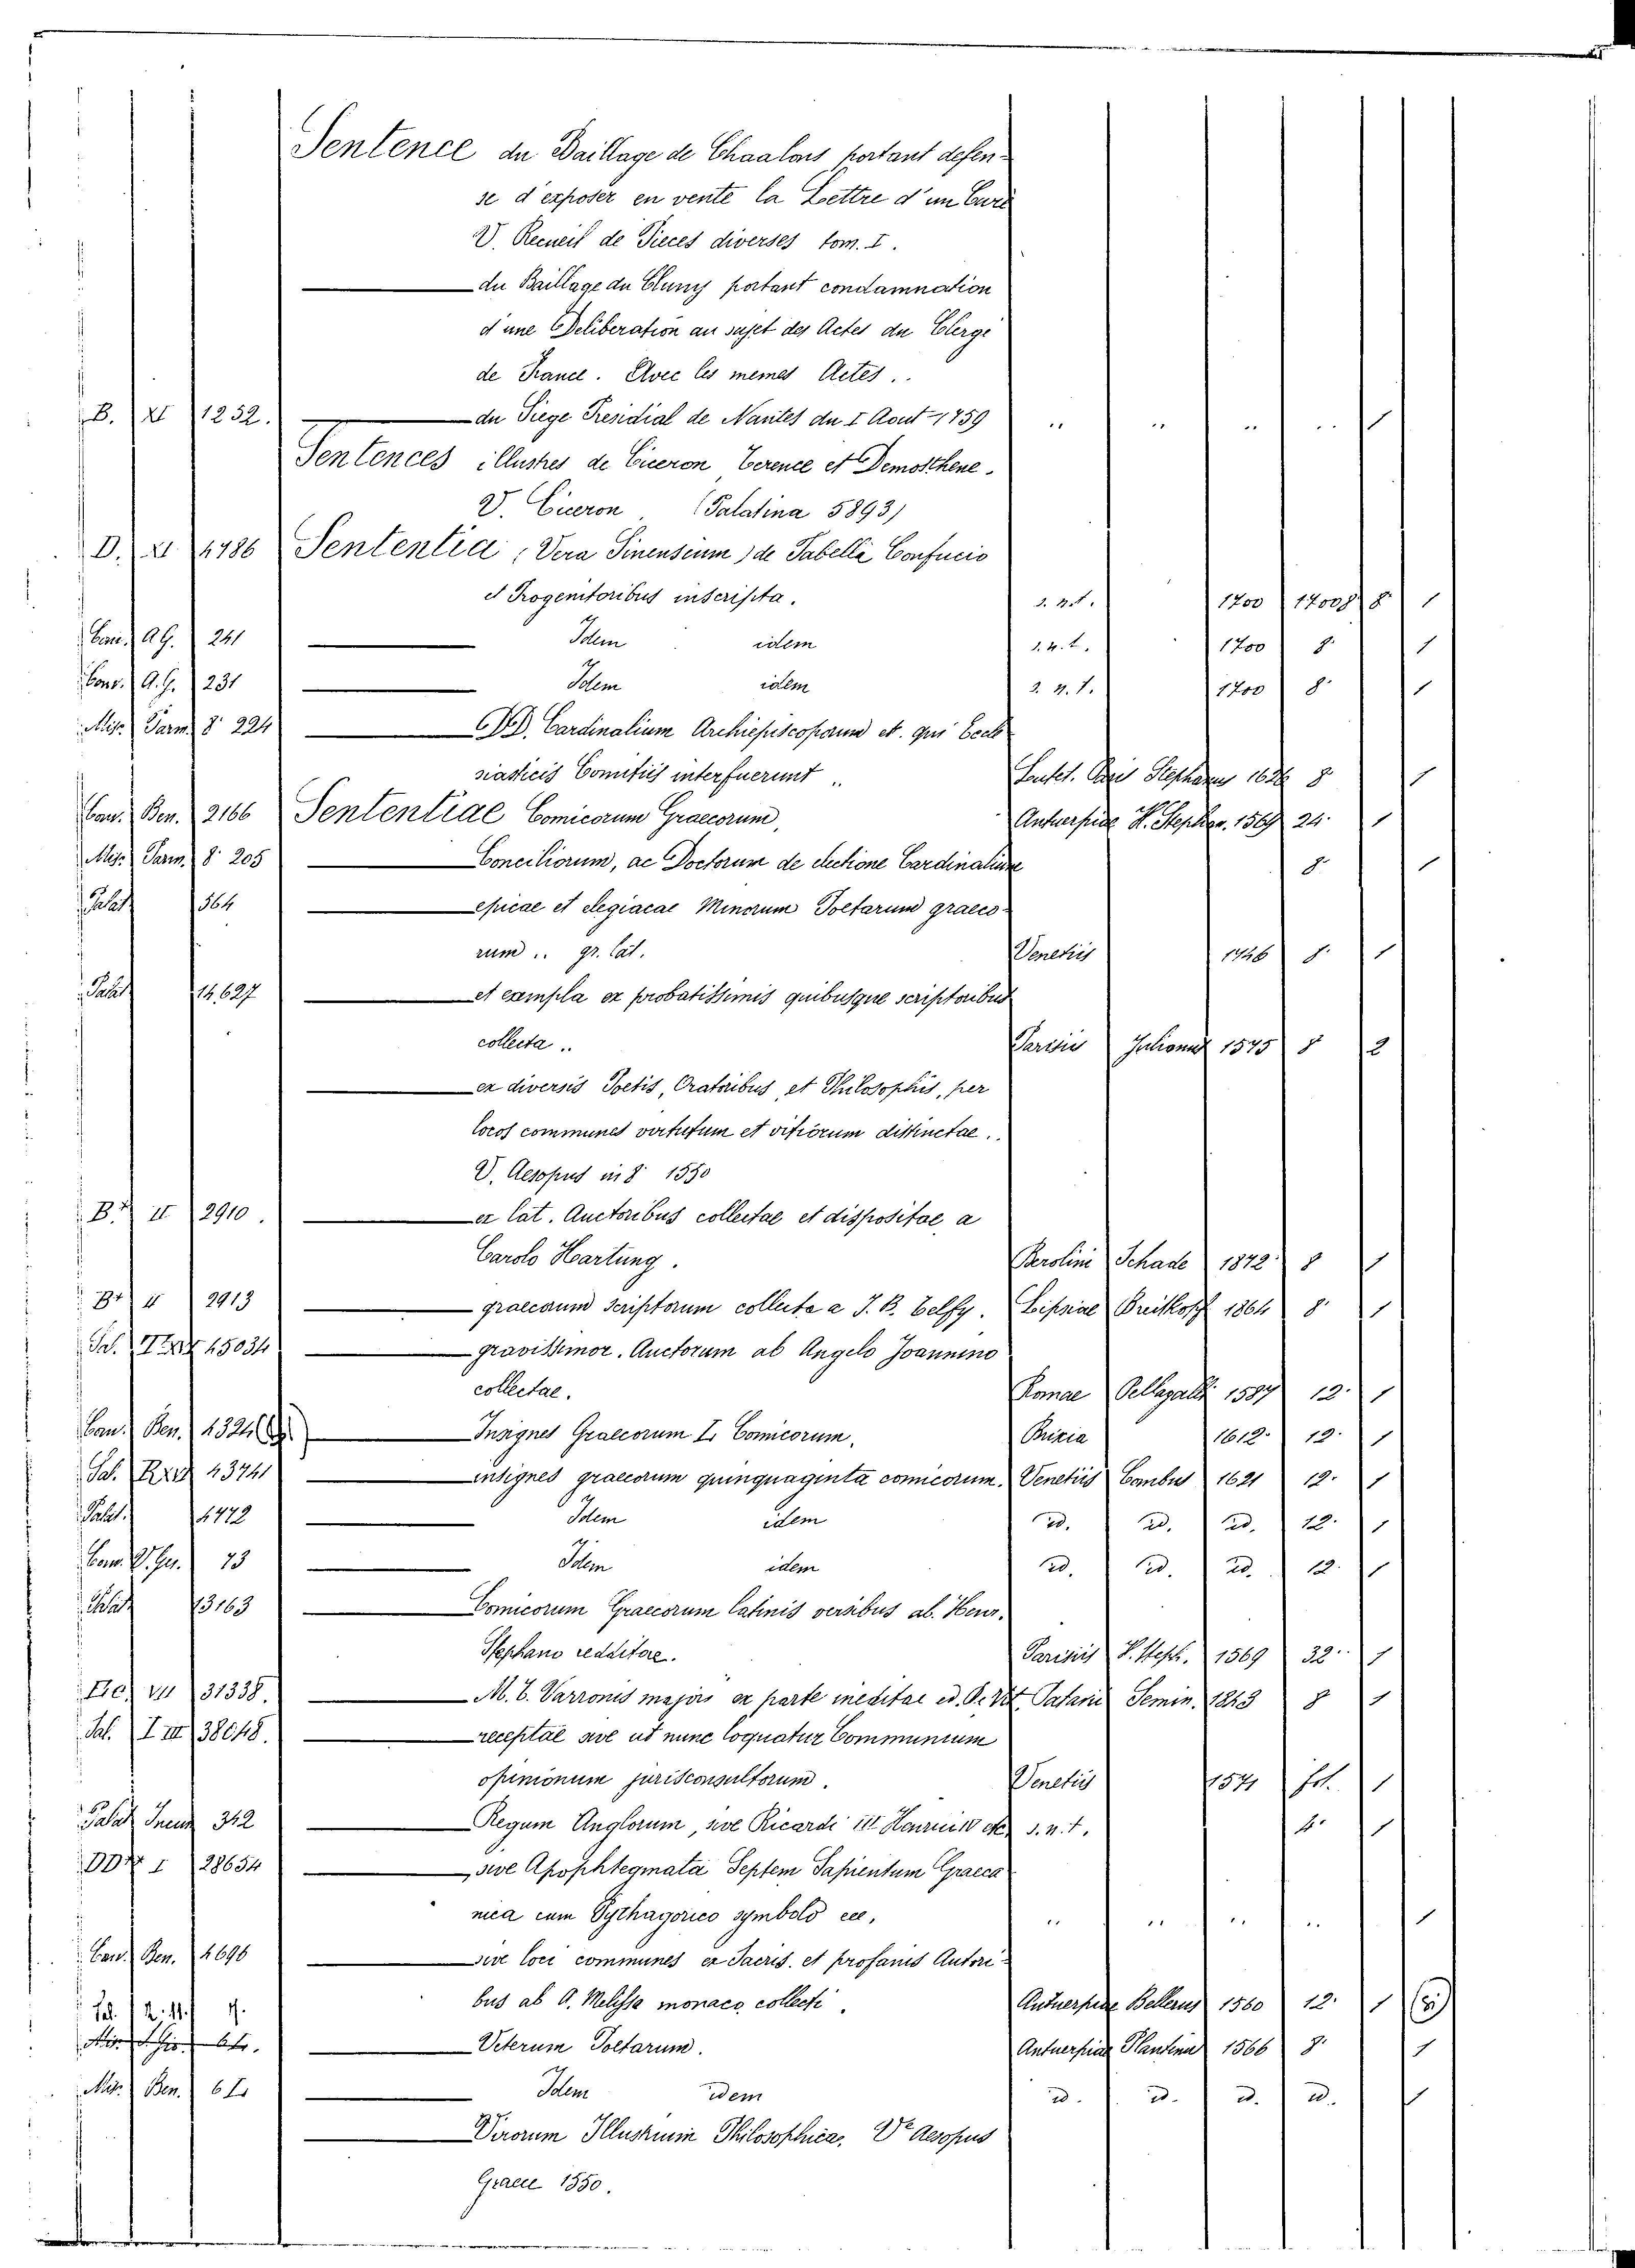 Sentence du Baillage de Chaalons portant defen-
se d'exposer en vente la Lettre d'un Curé
V. Recueil de Pieces diverses tom. I.
du Baillage du Cluny portant condamnation
d'une Deliberation au sujet des Actes du Clergé
de France. Avec les memes Actes..
B. XI 1252. du Siege Presidial de Nantes du I Aout 1759 .. .. .. .. 1
Sentences illustres de Ciceron Terence et Demosthene.
V. Ciceron (Palatina 5893)
D. XI 4786 Sententia (Vera Sinensium) de Tabella Confucio
et Progenitoribus inscripta. s. n. t. 1700 1700 8 8 1
Can. AG. 241 Idem idem s. n. t. 1700 8. 1
Conv. A.G. 231 Idem idem s. n. t. 1700 8. 1
Misc. Parm. 8° 224 DD. Cardinalium Archiepiscoporum et. qui Eccle
siasticis Comitiis interfuerunt .. Lutet. Stephanus 1636 8 1
Can. Ben. 2166 Sententiae Comicorum Graecorum, Antuerpiae H. Stephan. 1569 24. 1
Misc. Parm. 8° 205 Conciliorum, ac Doctorum de electione Cardinalium 8. 1
Palat. 564 epicae et elegiacae Minorum Poetarum graeco-
rum .. gr. lat. Venetiis 1746 8. 1
Palat. 14.627 et exempla ex probatissimis quibusque scriptoribus
collecta .. Parisiis Julianus 1575 8 2
ex diversis Poetis, Oratoribus, et Philosophis, per
locos communes virtutum et vitiorum distinctae..
V. Aesopus in 8° 1550
B. II 2910. ex lat. Auctoribus collectae et dispositae a
Carolo Hartung. Berolini Schade 1872 8 1
B+ II 2913 graecorum scriptorum collecta a J. B. Telfy. Lipsiae Breitkopf 1864 8. 1
Sal. 45034 gravissimor. Auctorum ab Angelo Joannino
collectae. Romae 1587 12. 1
Can. Ben. 4324 Insignes Graecorum L. Comicorum. Brixia 1612. 12. 1
Sal. 43741 insignes graecorum quinquaginta comicorum. Venetiis Combus 1621 12. 1
Palat. 4472 Idem idem id. id. id. 12. 1
Can. V. Ger. 73 Idem idem id. id. id. 12. 1
Palat. 13163 Comicorum Graecorum latinis versibus ab. Henr.
Stephano redditae. Parisiis H. Steph. 1569 32.. 1
VII 31338. M. T. Varronis majori ex parte ineditae ed. Vit. Patavii Semin. 1843 8 1
Sal. I III 38048. receptae sive ut nunc loquatur Communium
opinionum jurisconsultorum. Venetiis 1571 fol. 1
Palat. Incun. 342 Regum Anglorum, sive Ricardi III Henrici IV etc. s. n. t. 4. 1
DD+ I 28654 sive Apophtegmata Septem Sapientum Graeca
nica cum Pythagorico symbolo ecc. .. .. .. .. 1
Can. Ben. 4696 sive loci communes ex Sacris. et profanis Autori-
bus ab A. Melissa monaco collecti. Antuerpiae Bellerus 1560 12. 1
Veterum Poetarum. Antuerpiae Plantinus 1566 8. 1
Misc. Ben. Idem idem id. id. id. id. 1
Virorum Illustrium Philosophica. V.e Aesopus
Graece 1550.